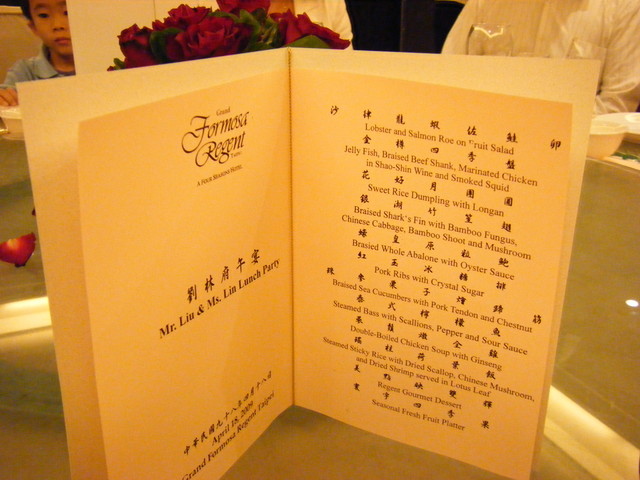 Grand
Formosa
Regent
Taipei
A FOUR SEASONS HOTEL
劉林府午宴
Mr. Liu & Ms. Lin Lunch Party
中華民國九十八年四月十八日
April 18, 2009
Grand Formosa Regent Taipei
沙律龍蝦佐鮭卵
Lobster and Salmon Roe on Fruit Salad
金樽四季盤
Jelly Fish, Braised Beef Shank, Marinated Chicken
in Shao-Shin Wine and Smoked Squid
花好月團圓
Sweet Rice Dumpling with Longan
銀湖竹笙翅
Braised Shark's Fin with Bamboo Fungus,
Chinese Cabbage, Bamboo Shoot and Mushroom
蠔皇原粒鮑
Brasied Whole Abalone with Oyster Sauce
紅玉冰糖排
Pork Ribs with Crystal Sugar
珠參栗子燴蹄筋
Braised Sea Cucumbers with Pork Tendon and Chestnut
泰式檸檬魚
Steamed Bass with Scallions, Pepper and Sour Sauce
蔘鬚燉全雞
Double-Boiled Chicken Soup with Ginseng
瑤柱荷葉飯
Steamed Sticky Rice with Dried Scallop, Chinese Mushroom,
and Dried Shrimp served in Lotus Leaf
美點映雙輝
Regent Gourmet Dessert
寰宇四季果
Seasonal Fresh Fruit Platter